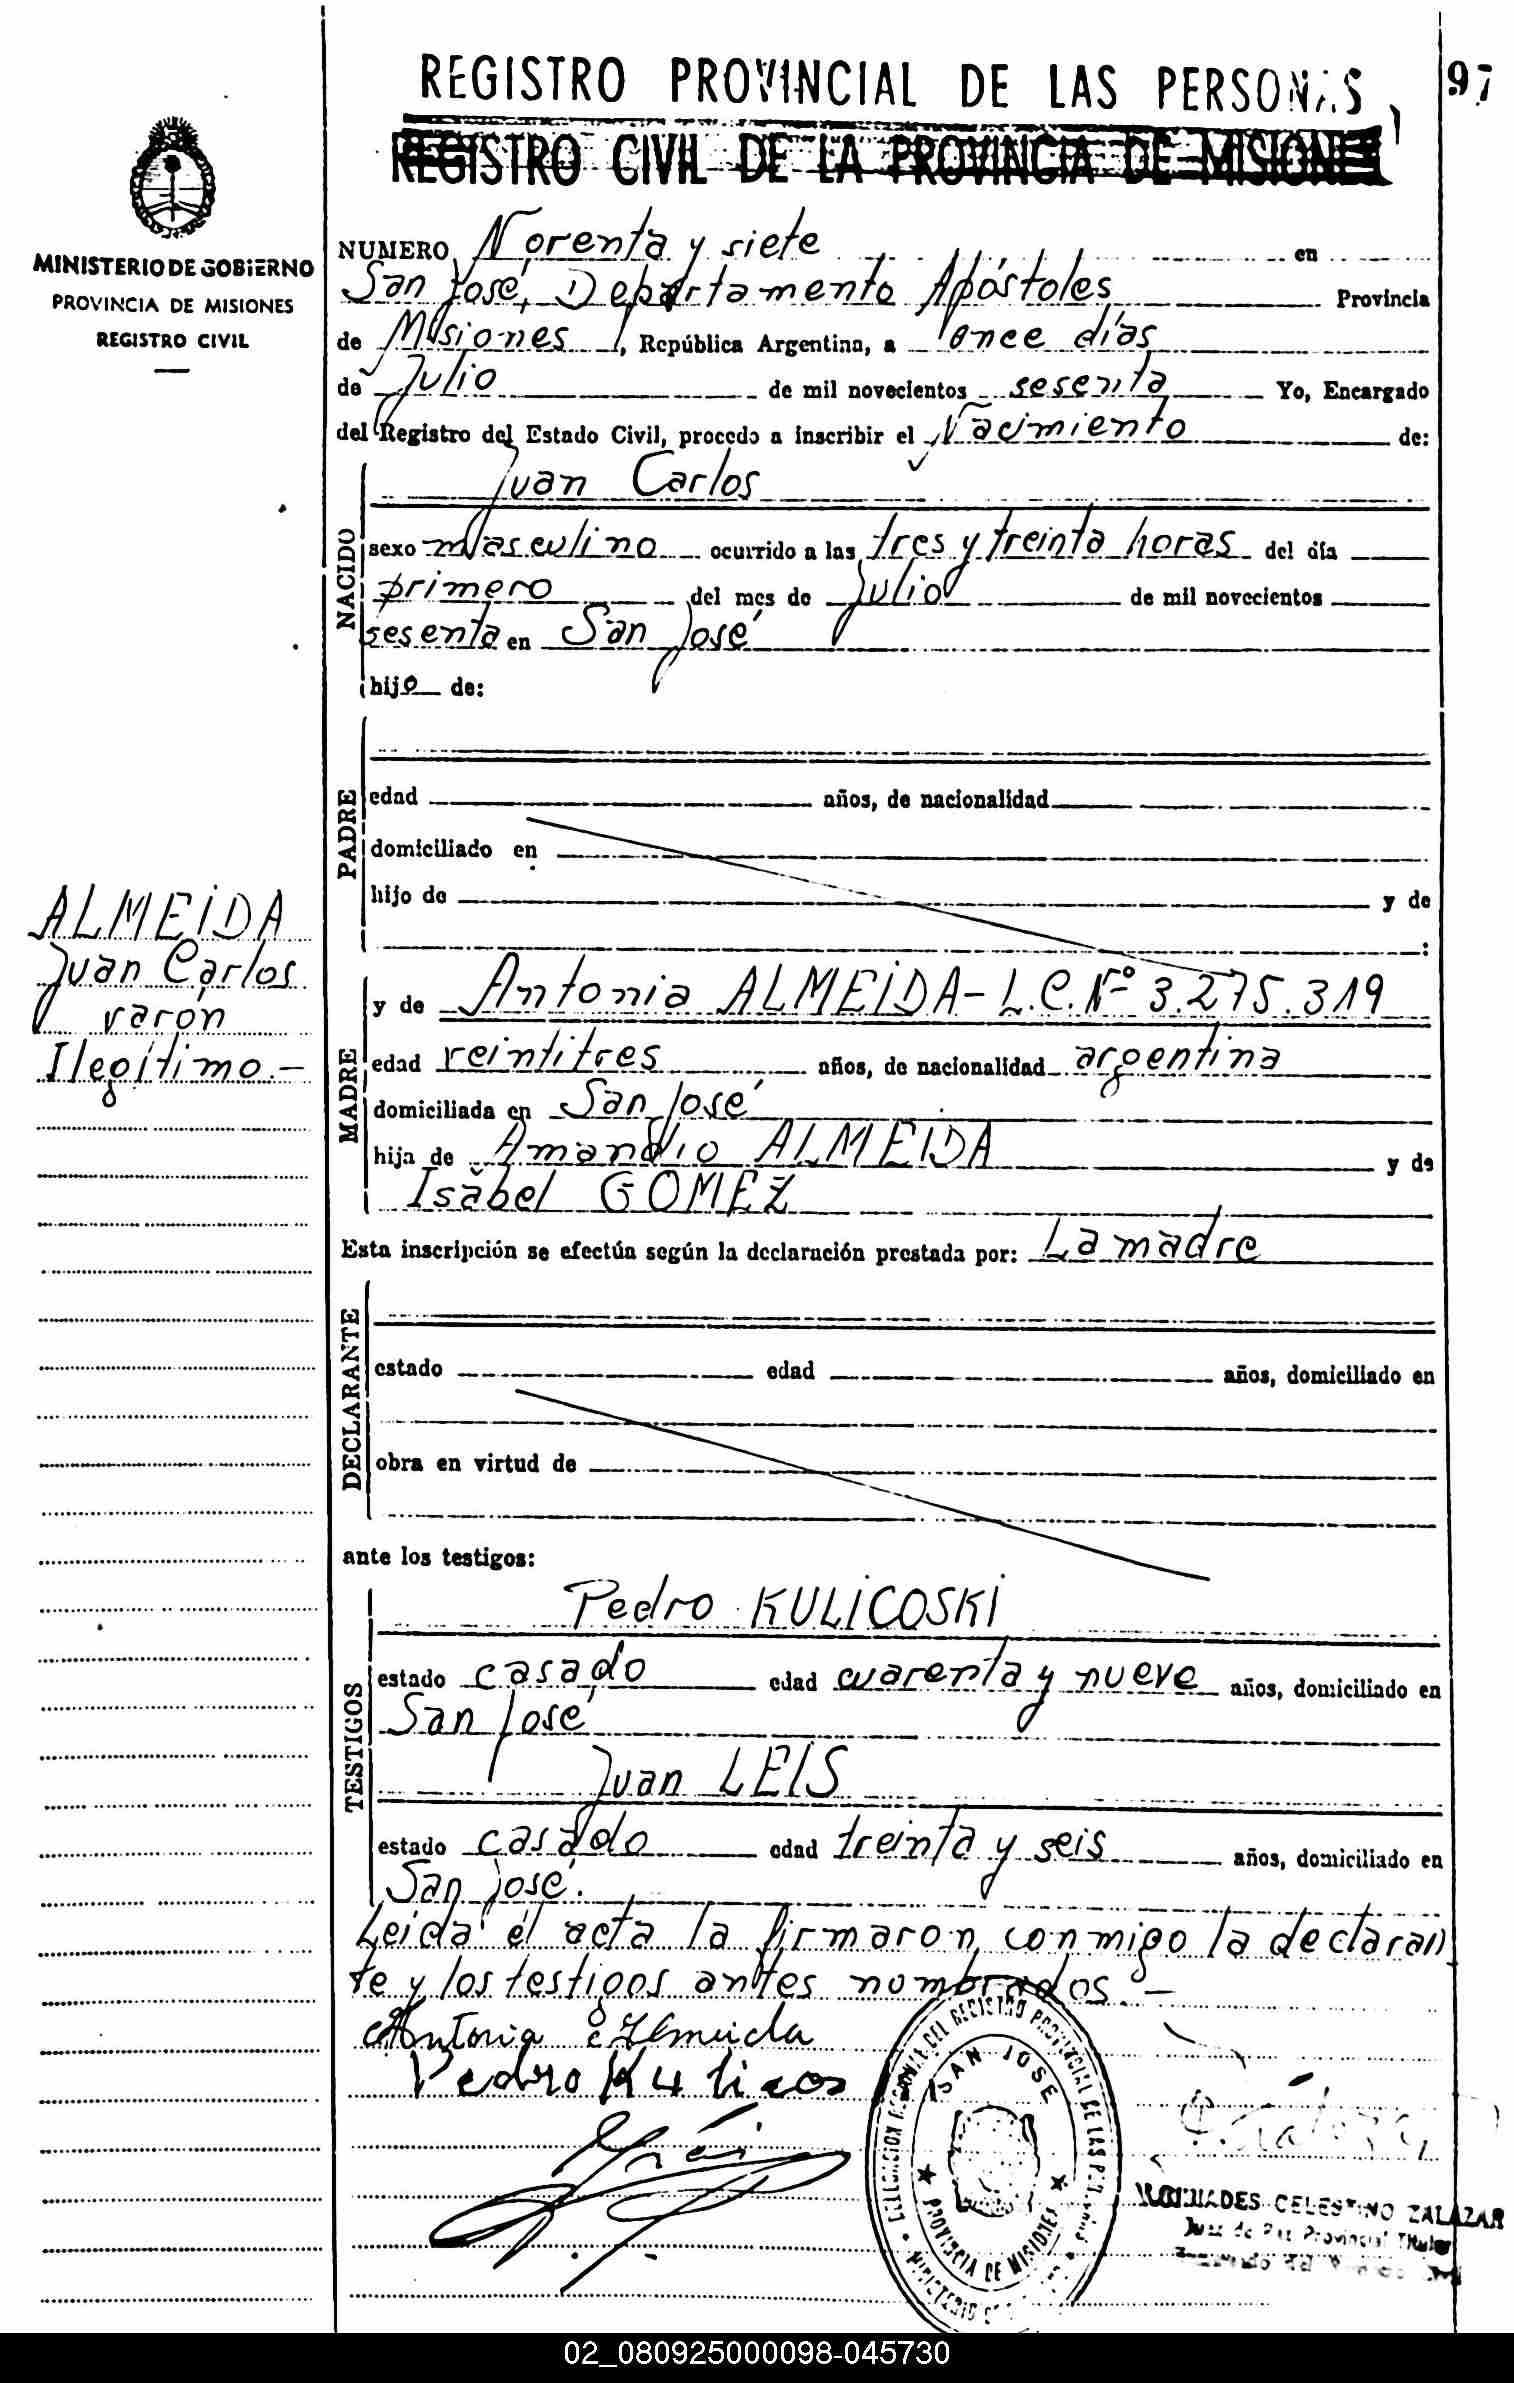 REGISTRO PROVINCIAL DE LAS PERSONAS,
97
REGISTRO CIVIL DE LA PROVINCIA DE MISIONES
MINISTERIO DE GOBIERNO
PROVINCIA DE MISIONES
REGISTRO CIVIL
NUMERO Noventa y siete en
San José, Departamento Apóstoles Provincia
de Misiones, República Argentina, a once días
de Julio de mil novecientos sesenta Yo, Encargado
del Registro del Estado Civil, procedo a inscribir el Nacimiento de:
NACIDO
Juan Carlos
sexo masculino ocurrido a las tres y treinta horas del día
primero del mes de Julio de mil novecientos
sesenta en San José
hijo de:
PADRE
edad años, de nacionalidad
domiciliado en
hijo de y de
:
ALMEIDA
Juan Carlos
varón
Ilegítimo.-
MADRE
y de Antonia ALMEIDA- L.C. Nº 3.275.319
edad veintitres años, de nacionalidad argentina
domiciliada en San José
hija de Amandio ALMEIDA y de
Isabel GOMEZ
Esta inscripción se efectúa según la declaración prestada por: La madre
DECLARANTE
estado edad años, domiciliado en
obra en virtud de
ante los testigos:
TESTIGOS
Pedro KULICOSKI
estado casado edad cuarenta y nueve años, domiciliado en
San José
Juan LEIS
estado casado edad treinta y seis años, domiciliado en
San José.
Leida el acta la firmaron conmigo la declaran
te y los testigos antes nombrados.-
Antonia Almeida
Pedro Kulicos
DELEGACION REGIONAL DEL REGISTRO PROVINCIAL DE LAS PERSONAS
SAN JOSE
PROVINCIA DE MISIONES
MINISTERIO
CELESTINO ZALAZAR
Juez de Paz Provincial Titular
02_080925000098-045730